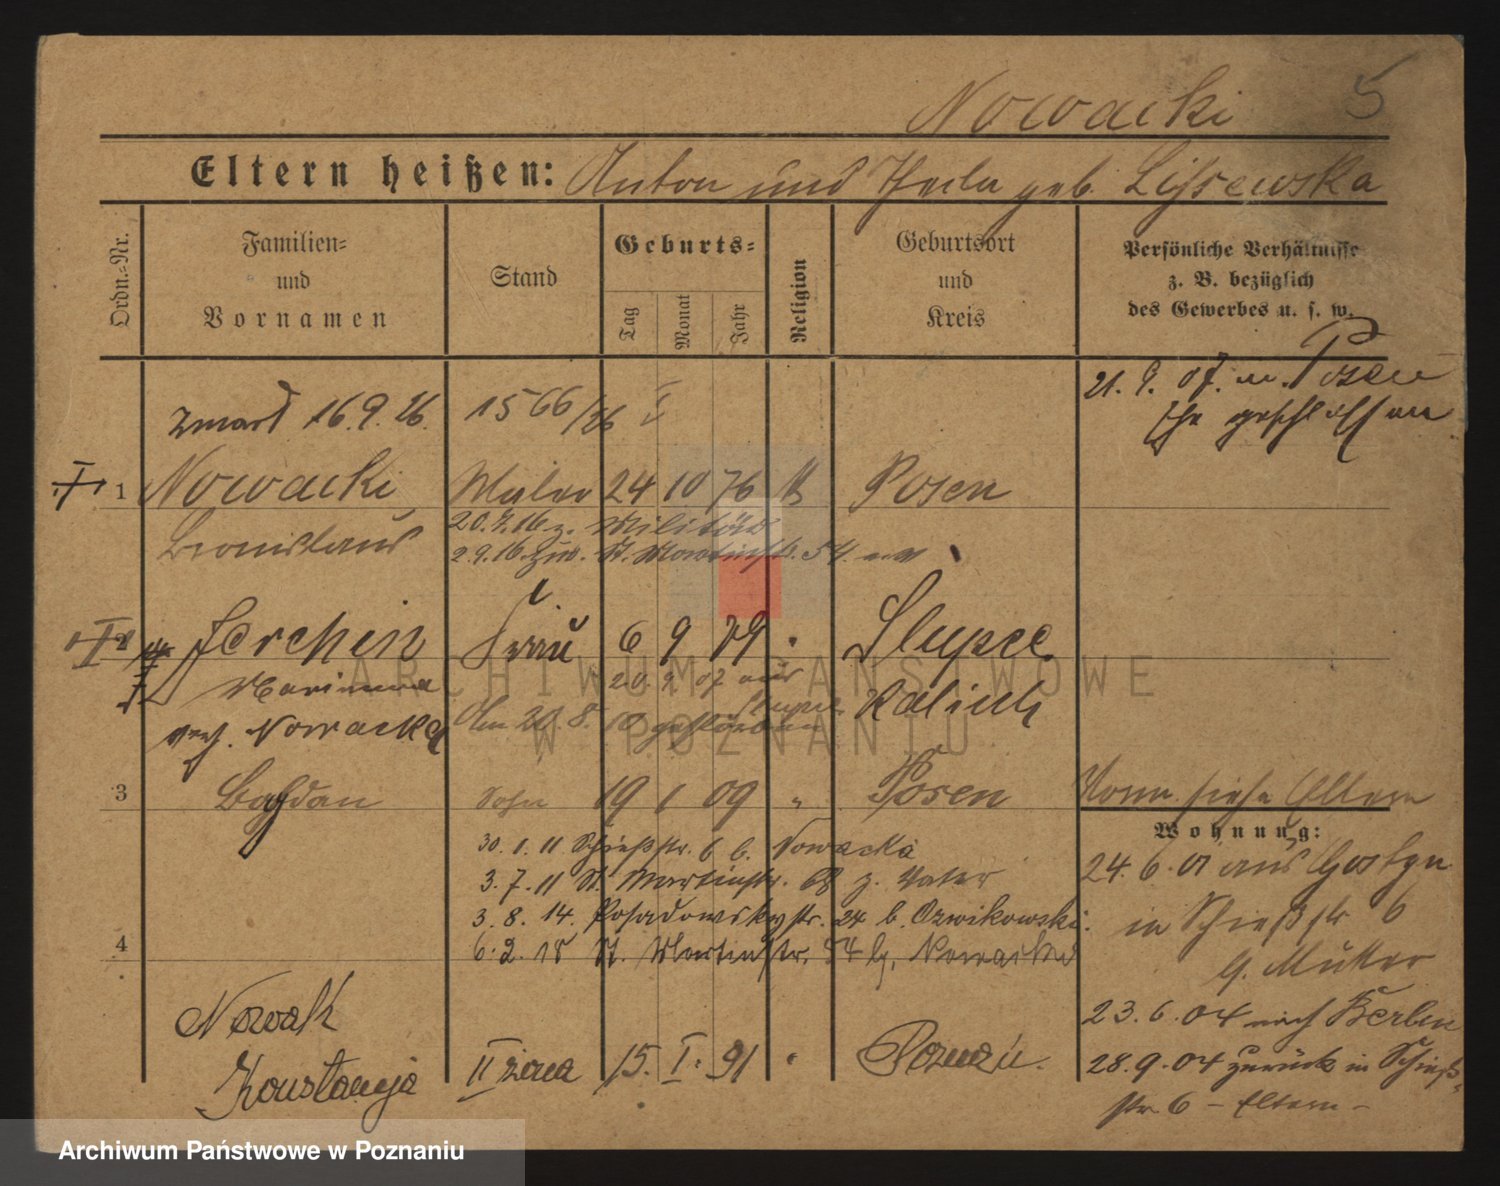 Nowacki 5
Eltern heißen: Anton und Thecla geb. Lissewska
Ordn.-Nr.
Familien-
und
Vornamen
Stand
Geburts-
Tag
Monat
Jahr
Religion
Geburtsort
und
Kreis
Persönliche Verhältnisse
z. B. bezüglich
des Gewerbes u. s. w.
21. 9. 07. in Posen
Ehe geschlossen
zmarł 16.9.26. 1566/26
1 Nowacki Maler 24 10 76 Posen
Bronislaus
20.7.16 z. Militär
2.9.16. St. Martinstr. 54.
2 Jerchen Frau 6 9 79 " Slupce
Marianna 20. 9 07 aus Slupce
Kalisch
verh. Nowacka Am 20.8. 10 gestorben
3 Bogdan Sohn 19 1 09 " Posen
siehe Eltern
Wohnung:
30. 1. 11 Schießstr. 6 b. Nowacka
3. 7. 11 St. Martinstr. 68 z. Vater
3. 8. 14. Posadowskystr. 24 b. Ozwikowski.
6. 2. 18 St. Martinstr. 54 b. Nowacka
4
24. 6. 01 aus Gostyn
in Schießstr 6
b. Mutter
23. 6. 04 nach Berlin
28. 9. 04 zurück in Schieß-
str. 6 – Eltern –
Nowak
Konstancja II żona 15. I. 91 " Poznań.
ARCHIWUM PAŃSTWOWE
W POZNANIU
Archiwum Państwowe w Poznaniu